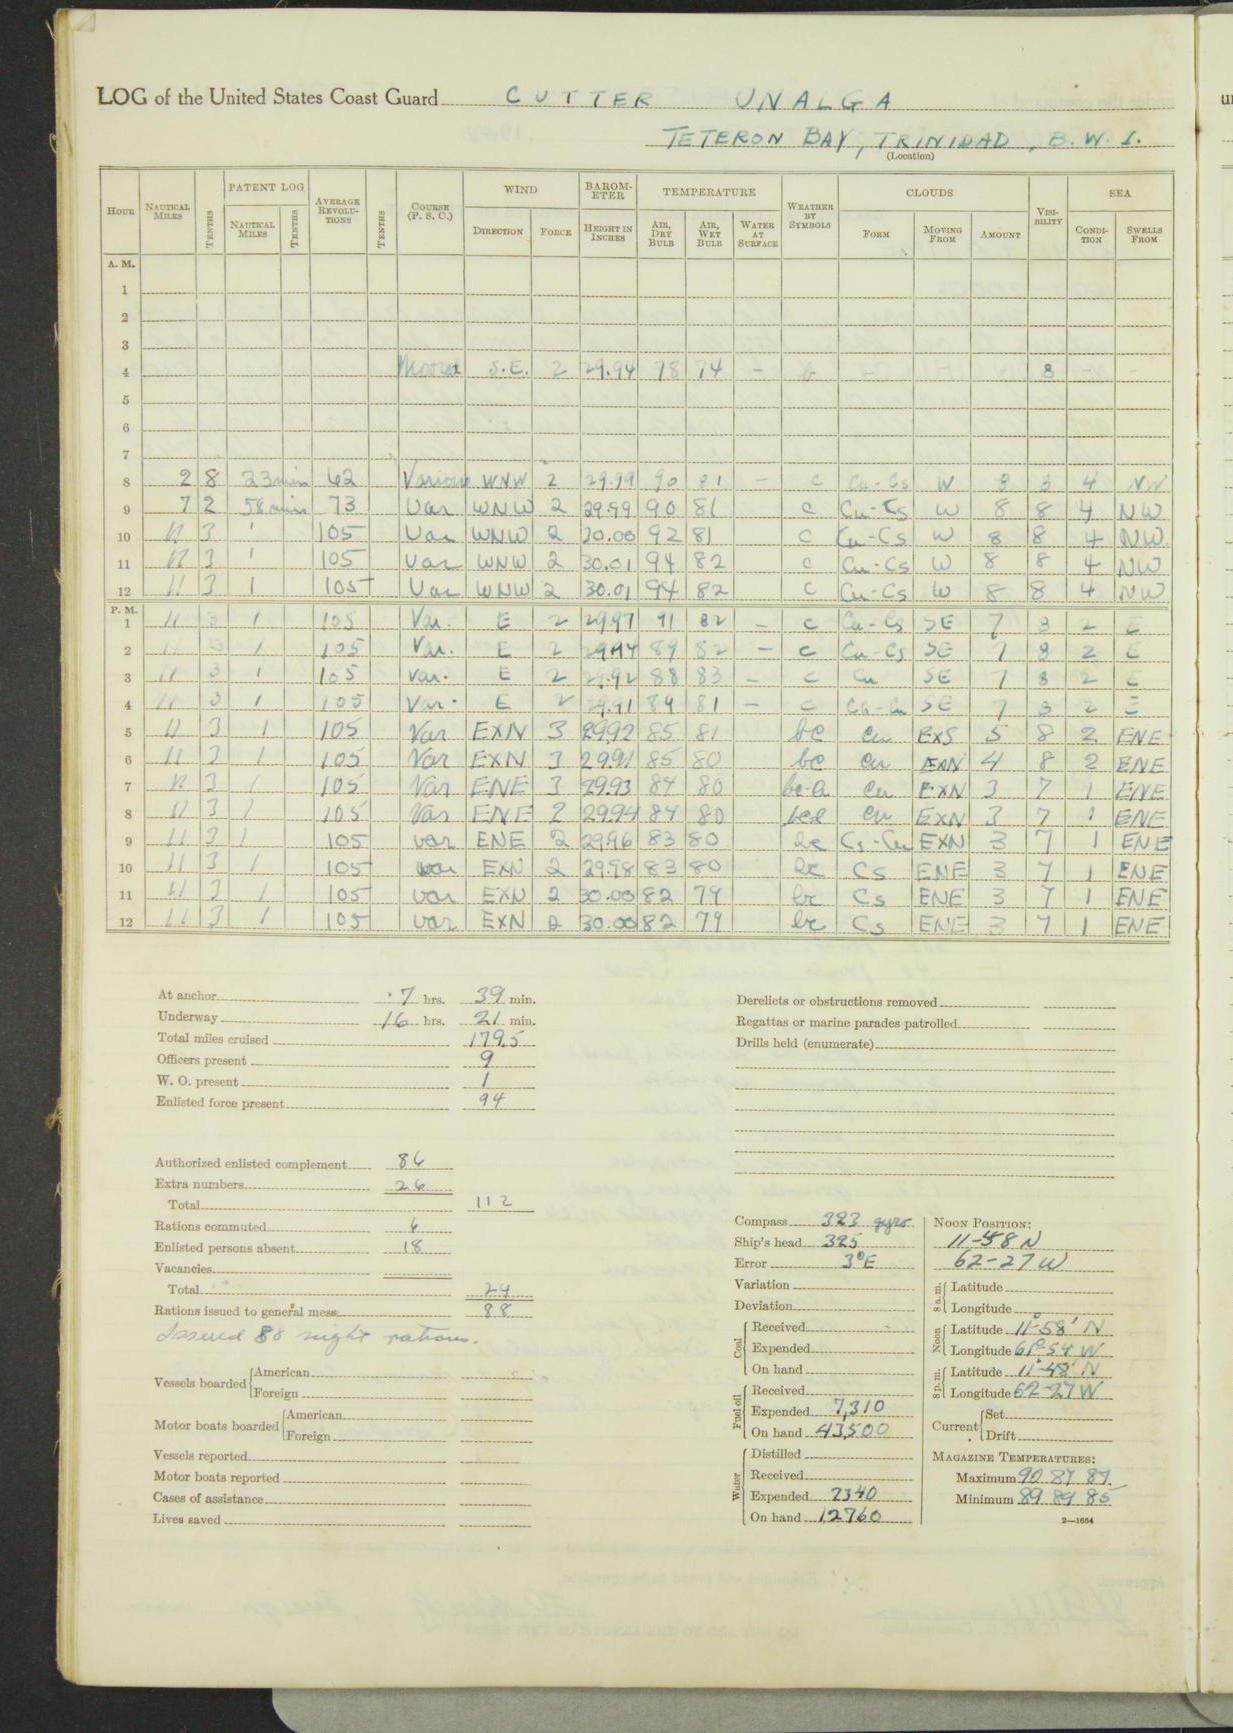 LOG of the United States Coast Guard CUTTER UNALGA
TETERON BAY, TRINIDAD, B. W. I.
(Location)
HOUR NAUTICAL MILES TENTHS PATENT LOG NAUTICAL MILES TENTHS AVERAGE REVOLUTIONS TENTHS COURSE (P. S. C.) WIND DIRECTION FORCE BAROMETER HEIGHT IN INCHES TEMPERATURE AIR, DRY BULB AIR, WET BULB WATER AT SURFACE WEATHER BY SYMBOLS CLOUDS FORM MOVING FROM AMOUNT VISIBILITY SEA CONDITION SWELLS FROM
A. M.
1
2
3
4 Moored S.E. 2 29.94 78 74 - b - 8 - -
5
6
7
8 2 8 23 min 62 Various WNW 2 29.99 90 81 - c Cu-Cs W 8 8 4 NW
9 7 2 58 min 73 Var WNW 2 29.99 90 81 c Cu-Cs W 8 8 4 NW
10 11 3 1 105 Var WNW 2 30.00 92 81 c Cu-Cs W 8 8 4 NW
11 11 3 1 105 Var WNW 2 30.01 94 82 c Cu-Cs W 8 8 4 NW
12 11 3 1 105 Var WNW 2 30.01 94 82 c Cu-Cs W 8 8 4 NW
P. M.
1 11 3 1 105 Var. E 2 29.97 91 82 - c Cu-Cs SE 7 8 2 E
2 11 3 1 105 Var. E 2 29.94 89 82 - c Cu-Cs SE 7 8 2 E
3 11 3 1 105 Var. E 2 29.92 88 83 - c Cu SE 7 8 2 E
4 11 3 1 105 Var. E 2 29.91 84 81 - c SE 7 8 2 E
5 11 3 1 105 Var EXN 3 29.92 85 81 bc Cu EXS 5 8 2 ENE
6 11 3 1 105 Var EXN 3 29.91 85 80 bc Cu EXN 4 8 2 ENE
7 11 3 1 105 Var ENE 3 29.93 84 80 Cu EXN 3 7 1 ENE
8 11 3 1 105 Var ENE 2 29.94 84 80 Cu EXN 3 7 1 ENE
9 11 3 1 105 var ENE 2 29.96 83 80 bc Cs-Cu EXN 3 7 1 ENE
10 11 3 1 105 var EXN 2 29.98 83 80 bc Cs ENE 3 7 1 ENE
11 11 3 1 105 var EXN 2 30.00 82 79 bc Cs ENE 3 7 1 ENE
12 11 3 1 105 var EXN 2 30.00 82 79 bc Cs ENE 3 7 1 ENE
At anchor 7 hrs. 39 min.
Underway 16 hrs. 21 min.
Total miles cruised 179.5
Officers present 9
W. O. present 1
Enlisted force present 94
Authorized enlisted complement 86
Extra numbers 26
Total 112
Rations commuted 6
Enlisted persons absent 18
Vacancies
Total 24
Rations issued to general mess 88
Issued 88 night rations.
Vessels boarded American
Foreign
Motor boats boarded American
Foreign
Vessels reported
Motor boats reported
Cases of assistance
Lives saved
Derelicts or obstructions removed
Regattas or marine parades patrolled
Drills held (enumerate)
Compass 323 gyro
Ship's head 325
Error 3° E
Variation
Deviation
Coal Received
Expended
On hand
Fuel oil Received
Expended 7,310
On hand 43,500
Water Distilled
Received
Expended 2340
On hand 12760
NOON POSITION:
11-58 N
62-27 W
8 a.m. Latitude
Longitude
Noon Latitude 11°-58' N
Longitude 61°-54 W
8 p.m. Latitude 11°-48' N
Longitude 62-27 W
Current Set
Drift
MAGAZINE TEMPERATURES:
Maximum 90 89 87
Minimum 89 89 85
2—1664